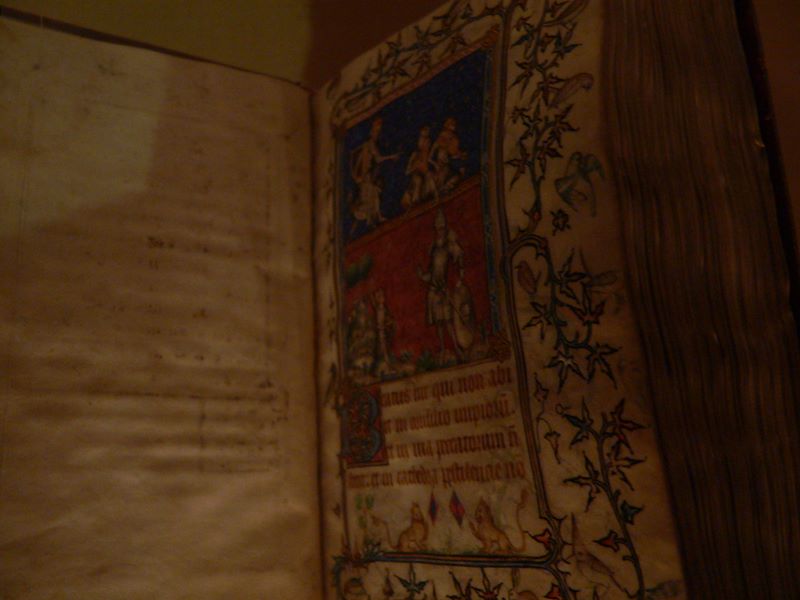 Beatus vir qui non abi
it in consilio impioru͂.
et in via peccatorum n͂
stetit. et in cathedra pestilencie no